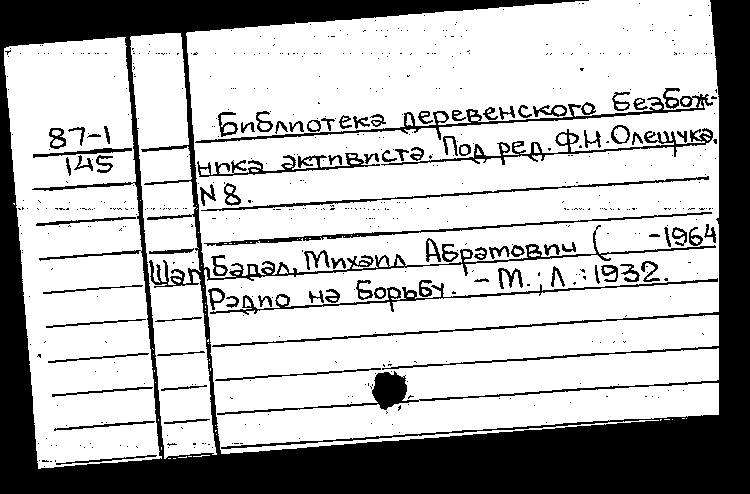 87-1
145
Библиотека деревенского безбож-
ника активиста. Под ред. Ф.Н. Олещука.
N 8.
Шамбадал, Михаил Абрамович ( -1964
Радио на борьбу. - М.; Л.: 1932.